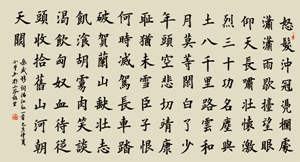 怒髮沖冠憑欄處
瀟瀟雨歇擡望眼
仰天長嘯壯懷激
烈三十功名塵與
土八千里路雲和
月莫等閒白了少
年頭空悲切靖康
耻猶未雪臣子恨
何時滅駕長車踏
破賀蘭山缺壯志
飢湌胡虜肉笑談
渴飲匈奴血待從
頭收拾舊山河朝
天闕
岳武穆詞滿江紅一首